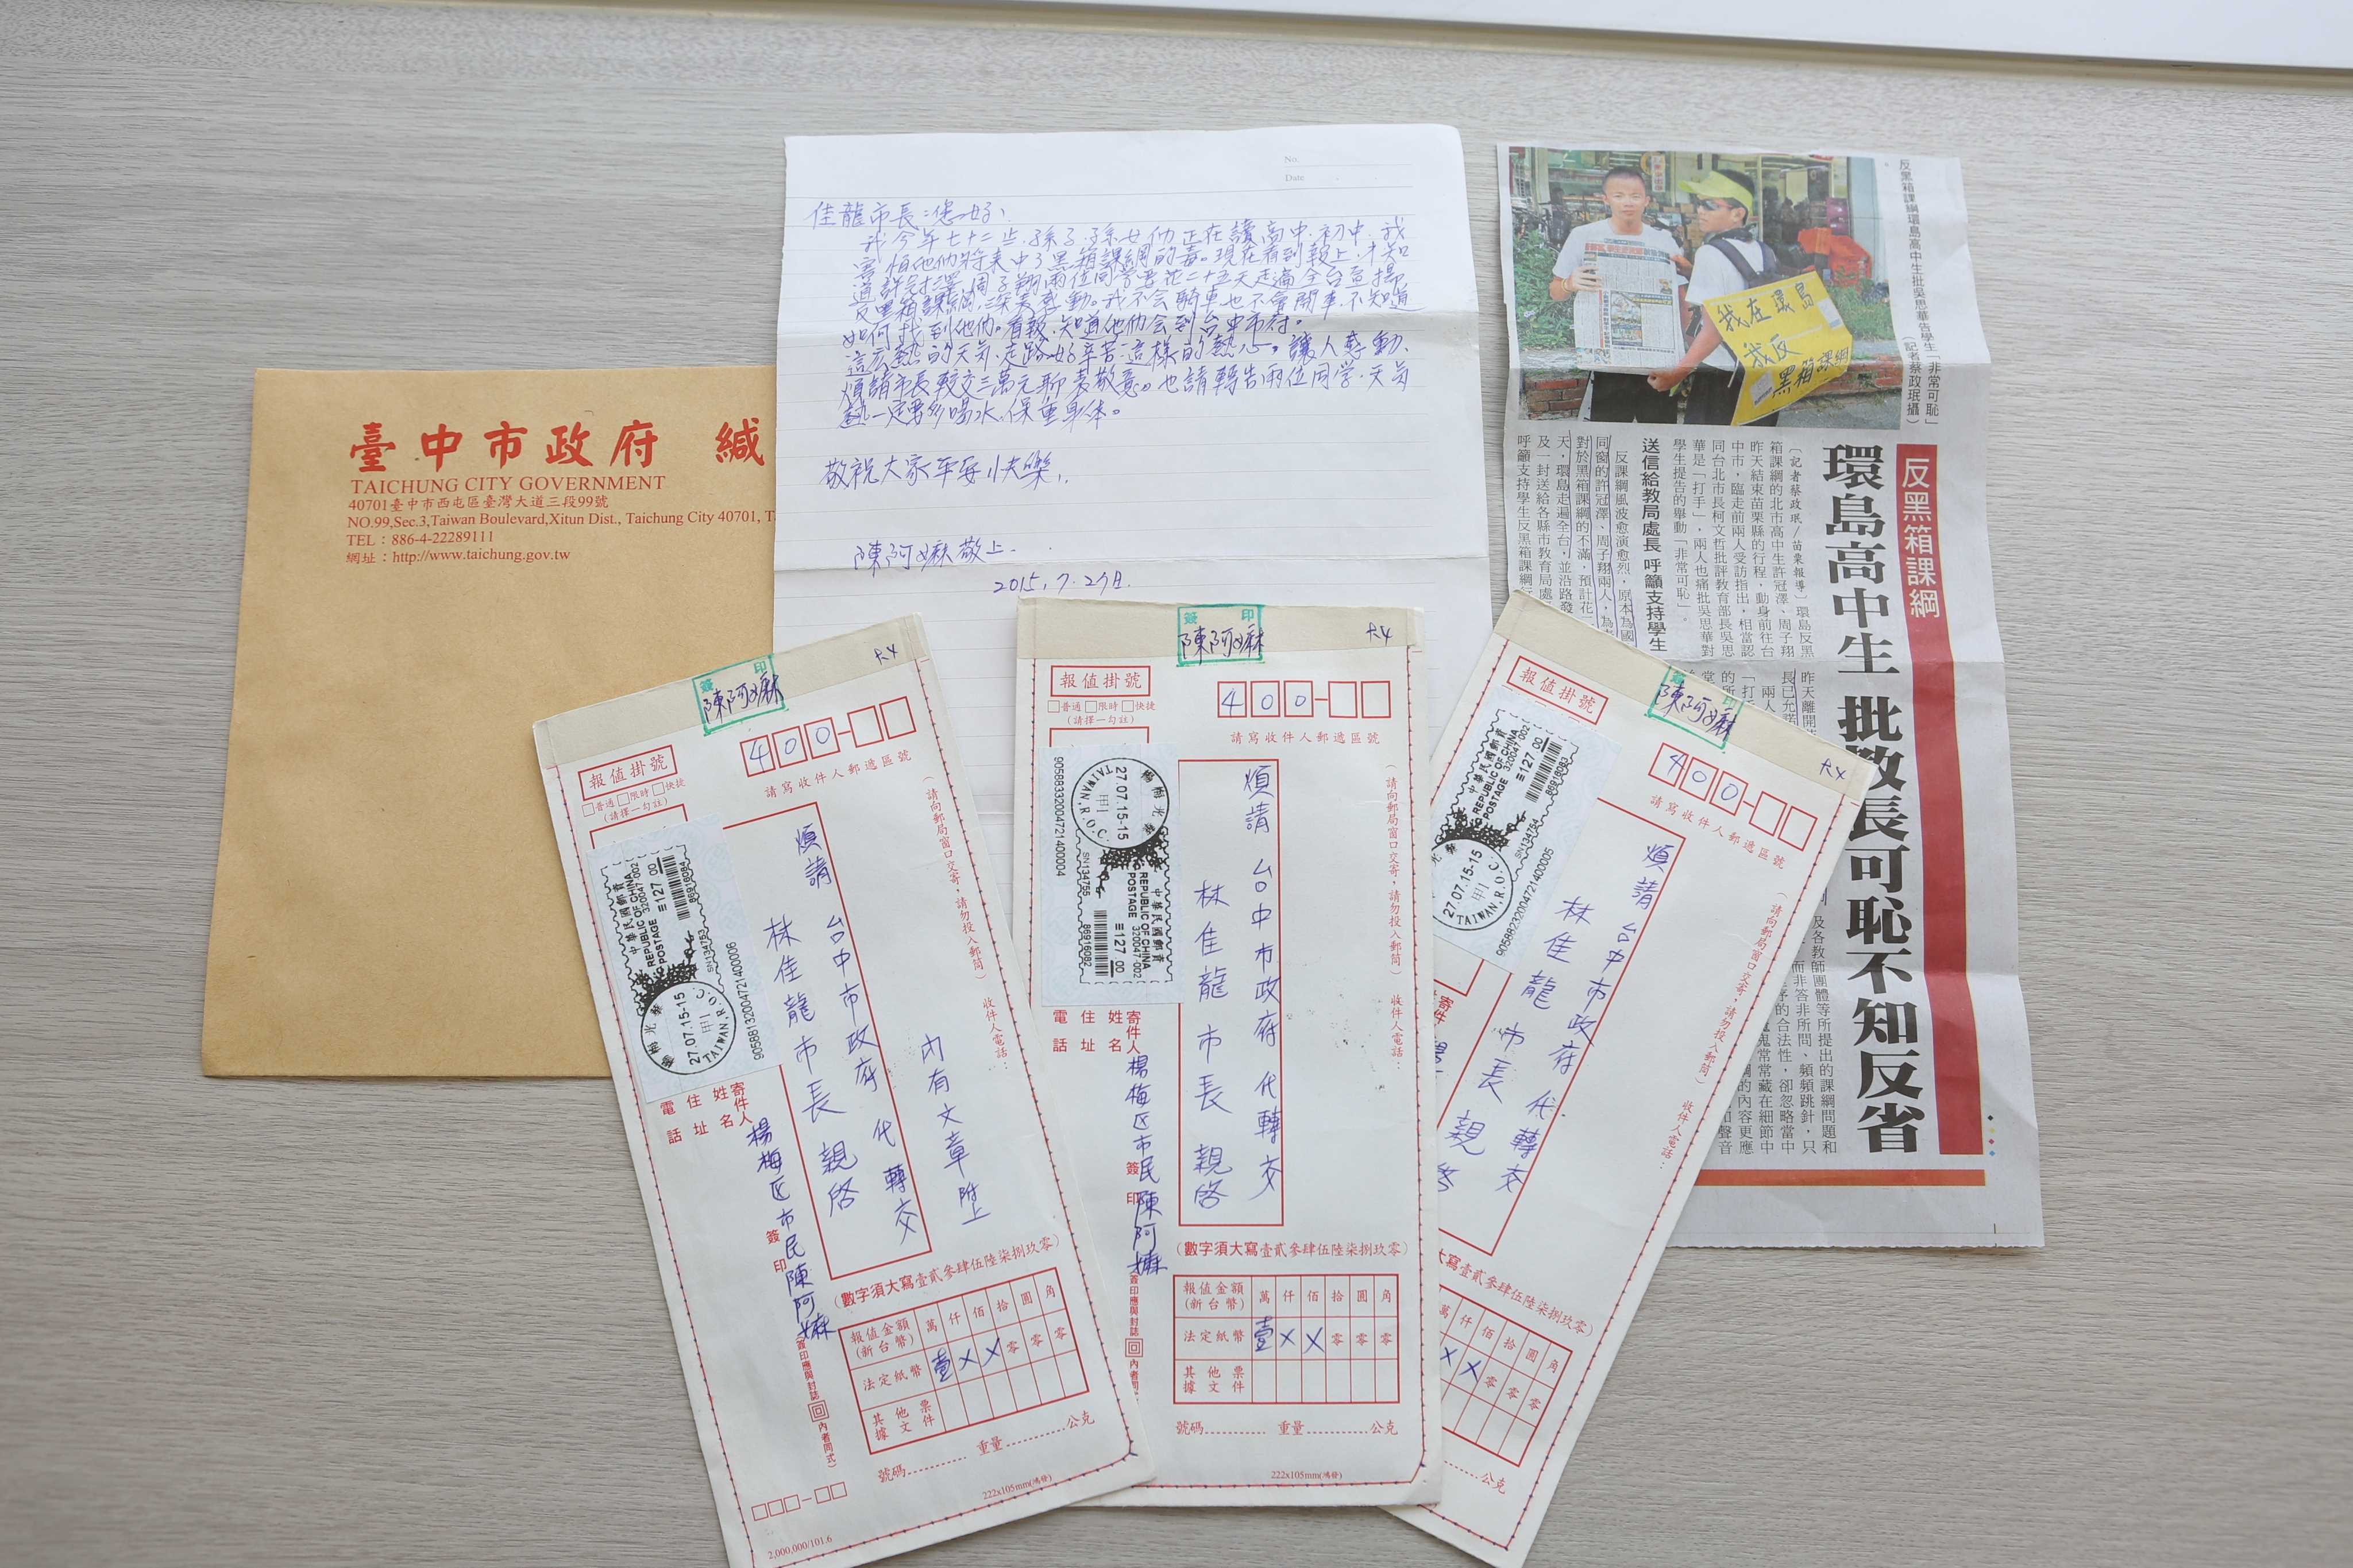 臺中市政府 緘
TAICHUNG CITY GOVERNMENT
40701臺中市西屯區臺灣大道三段99號
NO.99,Sec.3,Taiwan Boulevard,Xitun Dist., Taichung City 40701, T
TEL：886-4-22289111
網址：http://www.taichung.gov.tw
No.
Date
佳龍市長：您好！
我今年七十二歲，孫子、孫女仍正在讀高中、初中，我
害怕他們將來中了黑箱課綱的毒。現在看到報上，才知
道許冠澤、周子翔兩位同學要花二十五天走遍全台宣揚
反黑箱課綱，深表感動。我不会騎車也不會開車，不知道
如何找到他們。看報，知道他們会到台中市府。
這広熱的天気，走路好辛苦，這樣的熱心，讓人感動、
煩請市長転交三萬元聊表敬意。也請轉告兩位同学，天気
熱一定要多喝水、保重身体。
敬祝大家平安！快樂！
陳阿嬤敬上．
2015，7．27日．
反黑箱課綱環島高中生批吳思華告學生「非常可恥」
（記者蔡政珉攝）
我在環島
我反
黑箱課綱
反黑箱課綱
環島高中生 批教長可恥不知反省
〔記者蔡政珉／苗栗報導〕環島反黑
箱課綱的北市高中生許冠澤、周子翔
昨天結束苗栗縣的行程，動身前往台
中市，臨走前兩人受訪指出，相當認
同台北市長柯文哲批評教育部長吳思
華是「打手」，兩人也痛批吳思華對
學生提告的舉動「非常可恥」。
送信給教局處長 呼籲支持學生
反課綱風波愈演愈烈，原本為國
同窗的許冠澤、周子翔兩人，為
對於黑箱課綱的不滿，預計花二
天，環島走遍全台，並沿路發
及一封送給各縣市教育局處
呼籲支持學生反黑箱課綱
昨天離開
長已允諾
兩人
「打
的所
及各教師團體等所提出的課綱問題和
而非答非所問、頻頻跳針，只
序的合法性，卻忽略當中
鬼常常藏在細節中
的內容更應
聲音
簽 印
陳阿嬤
R4
報值掛號
□普通 □限時 □快捷
（請擇一勾註）
400-
請寫收件人郵遞區號
（請向郵局窗口交寄，請勿投入郵筒） 收件人電話：
中華民國郵資
REPUBLIC OF CHINA
320047-002
POSTAGE ≡127 00
86916084
SN134753
27.07.15-15
甲1
TAIWAN, R.O.C.
90588132004721400006
煩請 台中市政府 代轉交
林佳龍市長 親啓
內有文章附上
寄件人
姓名
住址
電話
楊梅區市民陳阿嬤
簽印
（簽印應與封誌回內者同式）
（數字須大寫壹貳參肆伍陸柒捌玖零）
報值金額（新台幣） 萬 仟 佰 拾 圓 角
法定紙幣 壹 X X 零 零 零
其他票據文件
號碼 重量 公克
222x105mm(鴻發)
2,000,000/101.6
簽 印
陳阿嬤
R4
報值掛號
□普通 □限時 □快捷
（請擇一勾註）
400-
請寫收件人郵遞區號
（請向郵局窗口交寄，請勿投入郵筒） 收件人電話：
中華民國郵資
REPUBLIC OF CHINA
320047-002
POSTAGE ≡127 00
86916082
SN134755
27.07.15-15
甲1
TAIWAN, R.O.C.
90588332004721400004
煩請 台中市政府 代轉交
林佳龍市長 親啓
寄件人
姓名
住址
電話
楊梅區市民陳阿嬤
簽印
（數字須大寫壹貳參肆伍陸柒捌玖零）
報值金額（新台幣） 萬 仟 佰 拾 圓 角
法定紙幣 壹 X X 零 零 零
其他票據文件
號碼 重量 公克
222x105mm(鴻發)
簽 印
陳阿嬤
R4
報值掛號
400-
請寫收件人郵遞區號
（請向郵局窗口交寄，請勿投入郵筒） 收件人電話：
中華民國郵資
REPUBLIC OF CHINA
320047-002
POSTAGE ≡127 00
86916083
SN134754
27.07.15-15
甲1
TAIWAN, R.O.C.
90588232004721400005
煩請 台中市政府 代轉交
林佳龍市長 親啓
寄件
大寫壹貳參肆伍陸柒捌玖零）
萬 仟 佰 拾 圓 角
X X 零 零 零
公克